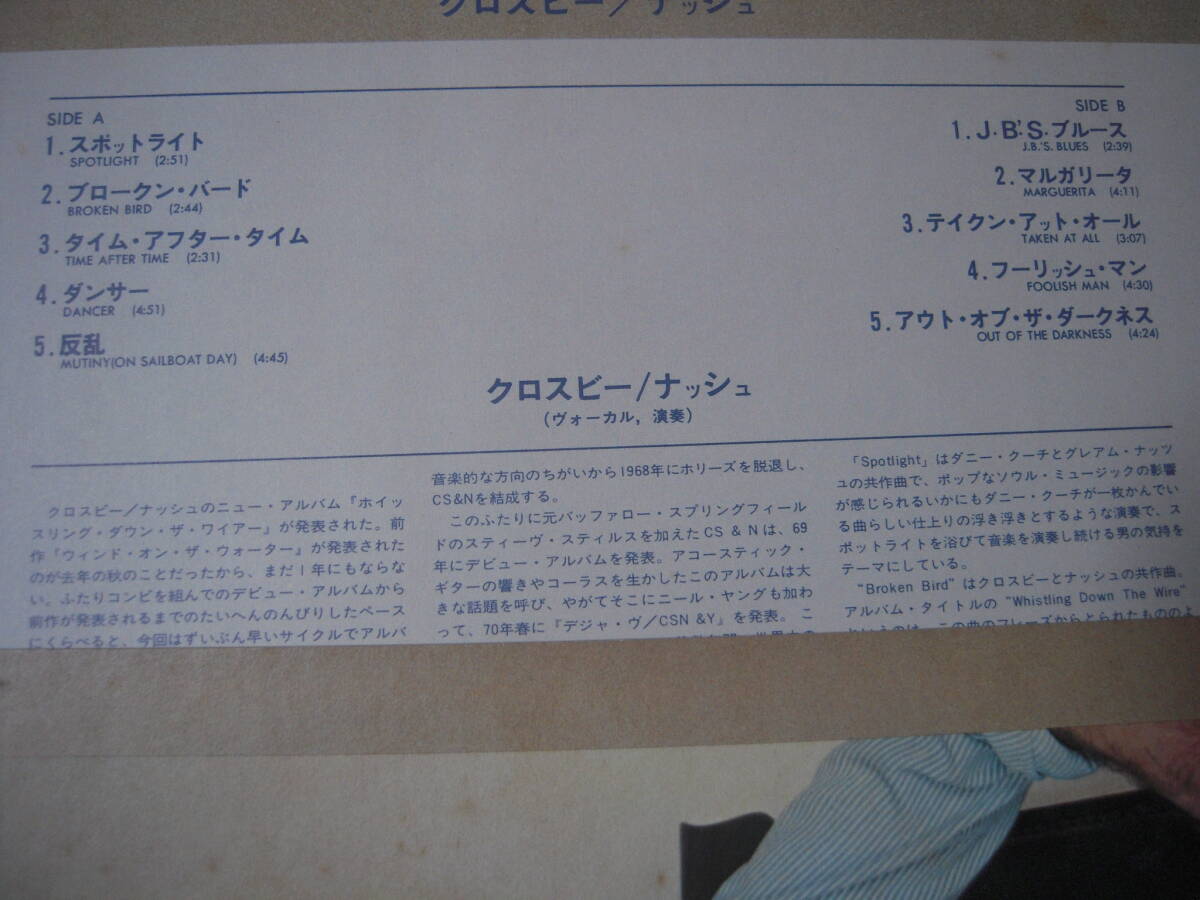 クロスビー/ナッシュ
SIDE A
1.スポットライト
SPOTLIGHT (2:51)
2.ブロークン・バード
BROKEN BIRD (2:44)
3.タイム・アフター・タイム
TIME AFTER TIME (2:31)
4.ダンサー
DANCER (4:51)
5.反乱
MUTINY(ON SAILBOAT DAY) (4:45)
SIDE B
1.J.B.'S.ブルース
J.B.'S. BLUES (2:39)
2.マルガリータ
MARGUERITA (4:11)
3.テイクン・アット・オール
TAKEN AT ALL (3:07)
4.フーリッシュ・マン
FOOLISH MAN (4:30)
5.アウト・オブ・ザ・ダークネス
OUT OF THE DARKNESS (4:24)
クロスビー/ナッシュ
(ヴォーカル, 演奏)
クロスビー/ナッシュのニュー・アルバム『ホイッ
スリング・ダウン・ザ・ワイアー』が発表された。前
作『ウィンド・オン・ザ・ウォーター』が発表された
のが去年の秋のことだったから、まだ1年にもならな
い。ふたりコンビを組んでのデビュー・アルバムから
前作が発表されるまでのたいへんのんびりしたペース
にくらべると、今回はずいぶん早いサイクルでアルバ
音楽的な方向のちがいから1968年にホリーズを脱退し、
CS&Nを結成する。
このふたりに元バッファロー・スプリングフィール
ドのスティーヴ・スティルスを加えたCS & Nは、69
年にデビュー・アルバムを発表。アコースティック・
ギターの響きやコーラスを生かしたこのアルバムは大
きな話題を呼び、やがてそこにニール・ヤングも加わ
って、70年春に『デジャ・ヴ/CSN &Y』を発表。こ
「Spotlight」はダニー・クーチとグレアム・ナッツ
ュの共作曲で、ポップなソウル・ミュージックの影響
が感じられるいかにもダニー・クーチが一枚かんでい
る曲らしい仕上りの浮き浮きとするような演奏で、ス
ポットライトを浴びて音楽を演奏し続ける男の気持を
テーマにしている。
"Broken Bird"はクロスビーとナッシュの共作曲。
アルバム・タイトルの "Whistling Down The Wire"
というのは、この曲のフレーズからとられたもののよ